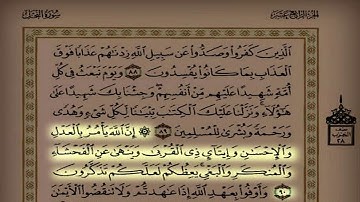 الجزء الرابع عشر
سورة النحل
الَّذِينَ كَفَرُوا وَصَدُّوا عَن سَبِيلِ اللَّهِ زِدْنَاهُمْ عَذَابًا فَوْقَ
الْعَذَابِ بِمَا كَانُوا يُفْسِدُونَ ٨٨ وَيَوْمَ نَبْعَثُ فِي كُلِّ
أُمَّةٍ شَهِيدًا عَلَيْهِم مِّنْ أَنفُسِهِمْ وَجِئْنَا بِكَ شَهِيدًا عَلَى
هَٰؤُلَاءِ وَنَزَّلْنَا عَلَيْكَ الْكِتَٰبَ تِبْيَٰنًا لِّكُلِّ شَيْءٍ وَهُدًى
وَرَحْمَةً وَبُشْرَىٰ لِلْمُسْلِمِينَ ٨٩ إِنَّ اللَّهَ يَأْمُرُ بِالْعَدْلِ
وَالْإِحْسَٰنِ وَإِيتَآئِ ذِي الْقُرْبَىٰ وَيَنْهَىٰ عَنِ الْفَحْشَآءِ
وَالْمُنكَرِ وَالْبَغْيِ يَعِظُكُمْ لَعَلَّكُمْ تَذَكَّرُونَ ٩٠
وَأَوْفُوا بِعَهْدِ اللَّهِ إِذَا عَٰهَدتُّمْ وَلَا تَنقُضُوا الْأَيْمَٰنَ